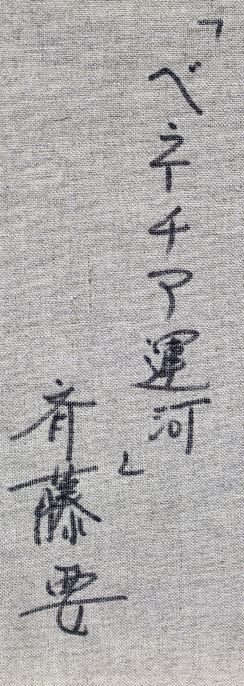 「ベネチア運河」
斉藤要